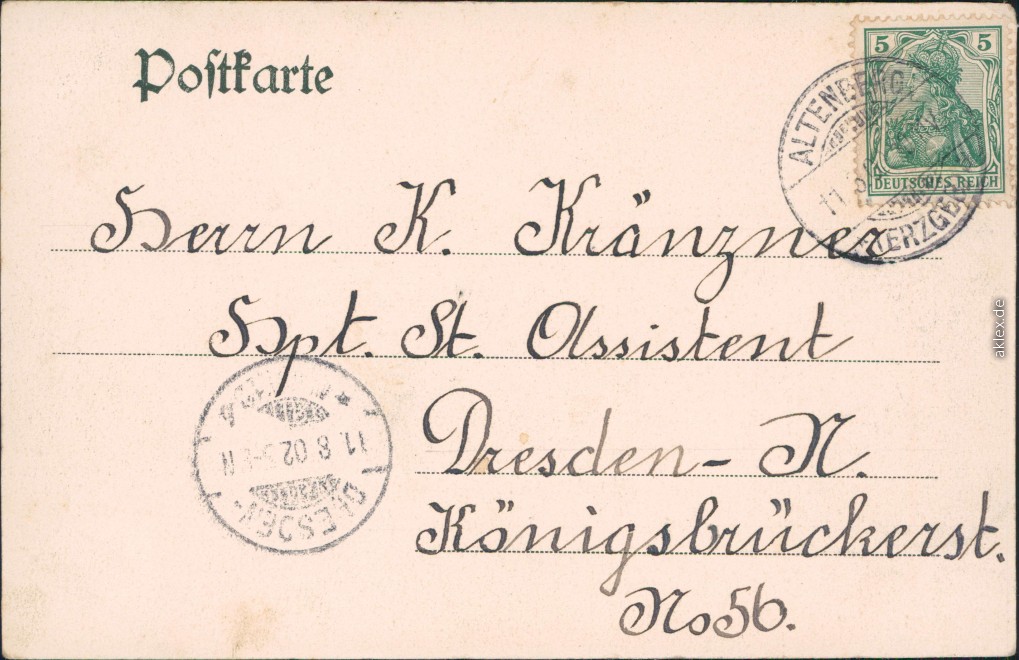 Postkarte
5 5
DEUTSCHES REICH
ALTENBERG
11.
ERZGEB
Herrn K. Kränzner
Hpt. St. Assistent
Dresden - N.
Königsbrückerst.
No 56.
DRESDEN
11. 8 02
N
aklex.de